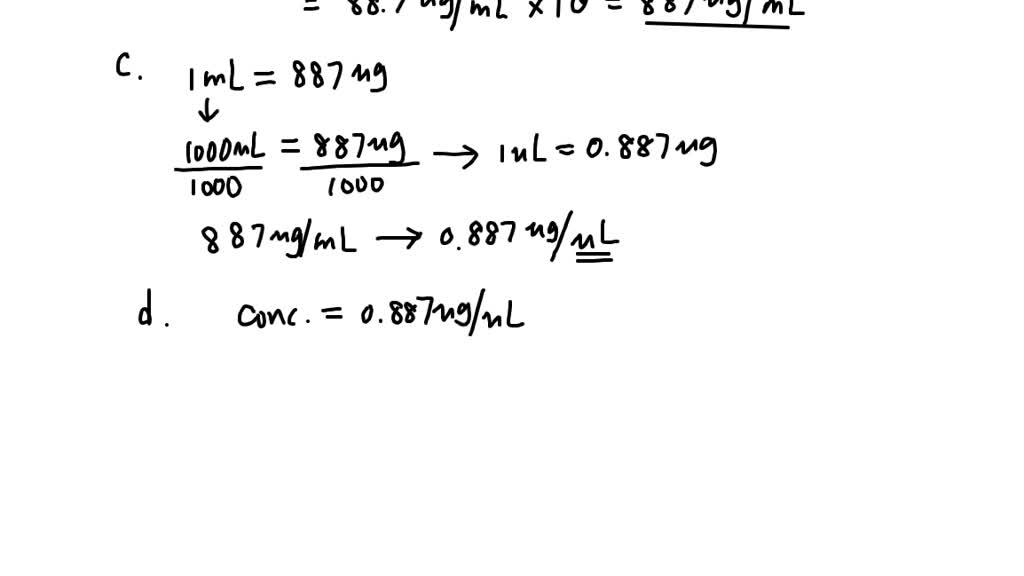 = 88.7 ug/mL × 10 = 887 ug/mL
c. 1mL = 887ug
↓
1000uL/1000 = 887ug/1000 → 1uL = 0.887ug
887ug/mL → 0.887ug/uL
d. Conc. = 0.887ug/uL